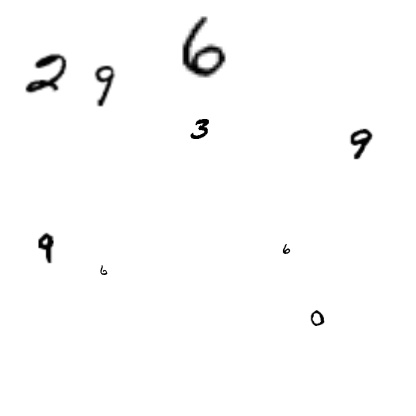 2 9 6
3
9
9
6
6
0